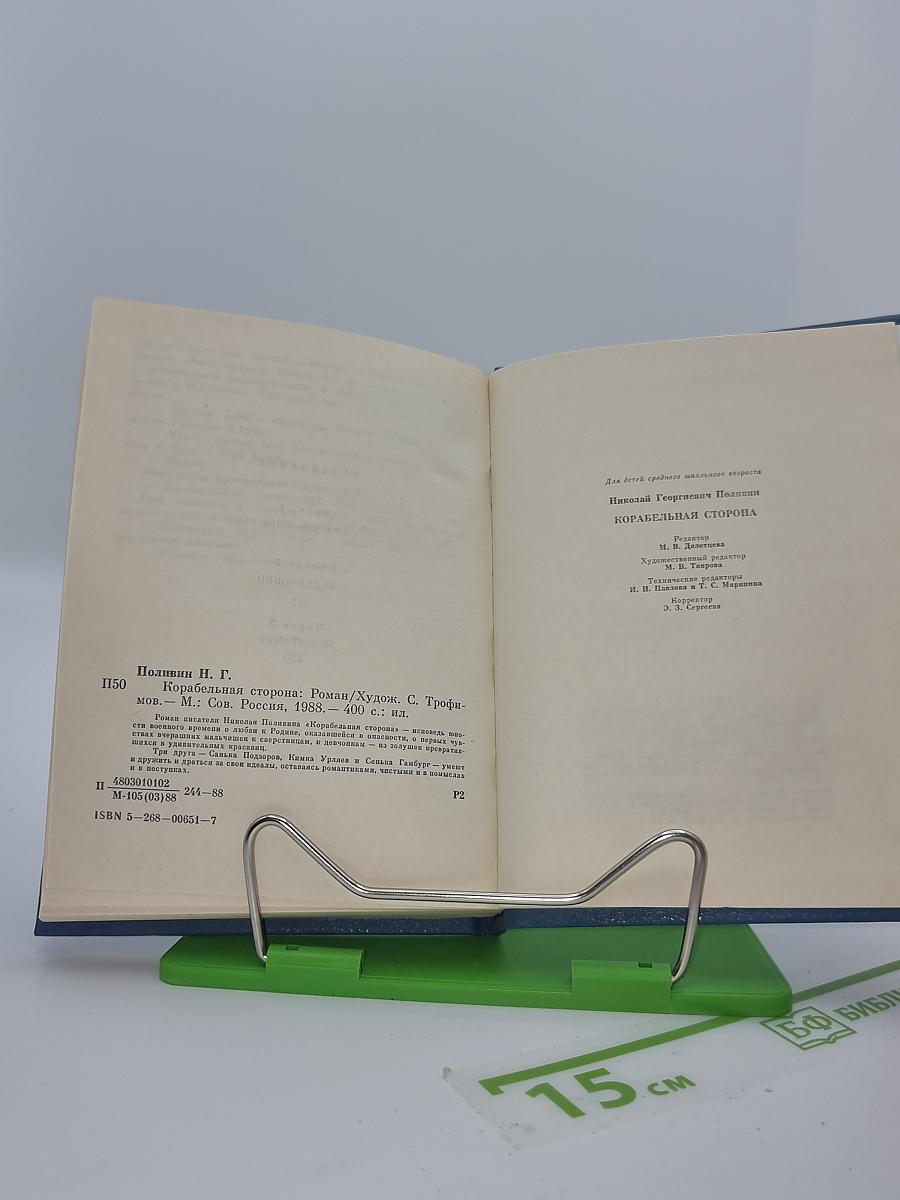 Поливин Н. Г.
П50 Корабельная сторона: Роман/Худож. С. Трофи-
мов.— М.: Сов. Россия, 1988.— 400 с.: ил.
Роман писателя Николая Поливина «Корабельная сторона» — исповедь юно-
сти военного времени о любви к Родине, оказавшейся в опасности, о первых чув-
ствах вчерашних мальчишек к сверстницам, к девчонкам — из золушек превратив-
шихся в удивительных красавиц.
Три друга — Санька Подзоров, Кимка Урляев и Сенька Гамбург — умеют
и дружить и драться за свои идеалы, оставаясь романтиками, чистыми и в помыслах
и в поступках.
П 4803010102
М-105(03)88 244—88 Р2
ISBN 5—268—00651—7
Для детей среднего школьного возраста
Николай Георгиевич Поливин
КОРАБЕЛЬНАЯ СТОРОНА
Редактор
М. В. Долотцева
Художественный редактор
М. В. Таирова
Технические редакторы
И. И. Павлова и Т. С. Маринина
Корректор
Э. З. Сергеева
15 см
БФ